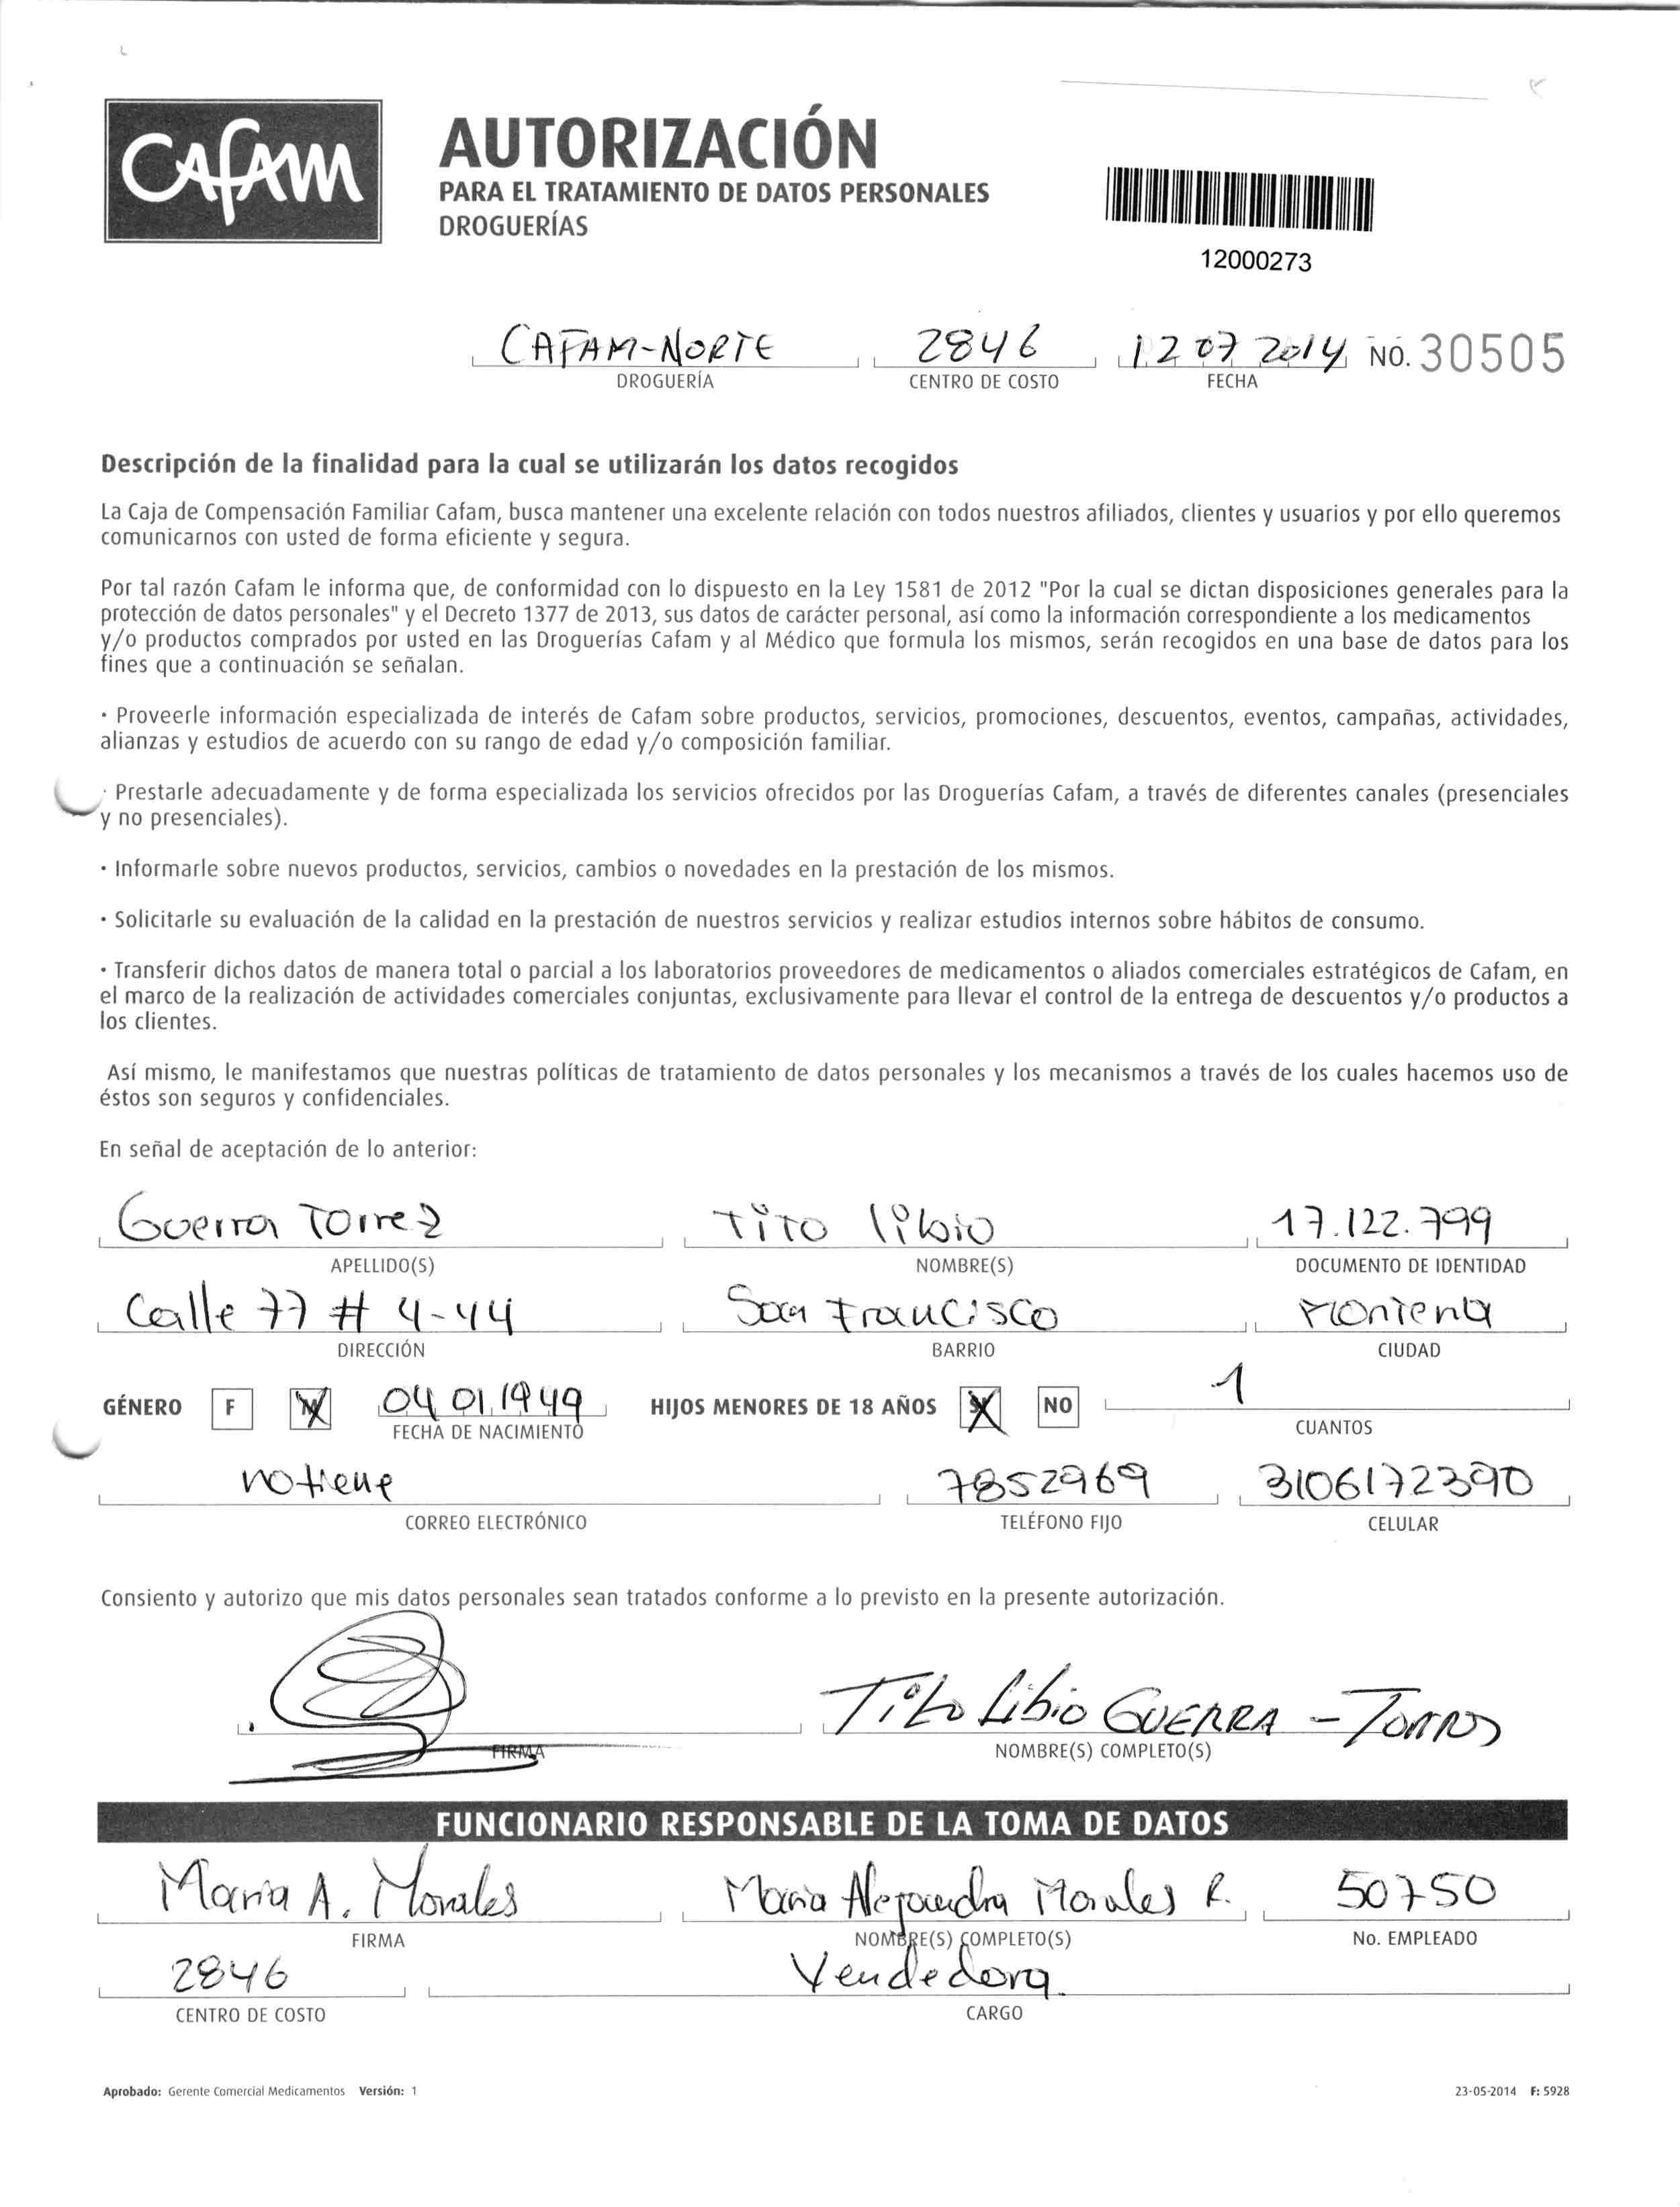 CAFAM
AUTORIZACIÓN
PARA EL TRATAMIENTO DE DATOS PERSONALES
DROGUERÍAS
12000273
CAFAM-NORTE 2846 12 07 2014 NO. 30505
DROGUERÍA CENTRO DE COSTO FECHA
Descripción de la finalidad para la cual se utilizarán los datos recogidos
La Caja de Compensación Familiar Cafam, busca mantener una excelente relación con todos nuestros afiliados, clientes y usuarios y por ello queremos
comunicarnos con usted de forma eficiente y segura.
Por tal razón Cafam le informa que, de conformidad con lo dispuesto en la Ley 1581 de 2012 "Por la cual se dictan disposiciones generales para la
protección de datos personales" y el Decreto 1377 de 2013, sus datos de carácter personal, así como la información correspondiente a los medicamentos
y/o productos comprados por usted en las Droguerías Cafam y al Médico que formula los mismos, serán recogidos en una base de datos para los
fines que a continuación se señalan.
· Proveerle información especializada de interés de Cafam sobre productos, servicios, promociones, descuentos, eventos, campañas, actividades,
alianzas y estudios de acuerdo con su rango de edad y/o composición familiar.
· Prestarle adecuadamente y de forma especializada los servicios ofrecidos por las Droguerías Cafam, a través de diferentes canales (presenciales
y no presenciales).
· Informarle sobre nuevos productos, servicios, cambios o novedades en la prestación de los mismos.
· Solicitarle su evaluación de la calidad en la prestación de nuestros servicios y realizar estudios internos sobre hábitos de consumo.
· Transferir dichos datos de manera total o parcial a los laboratorios proveedores de medicamentos o aliados comerciales estratégicos de Cafam, en
el marco de la realización de actividades comerciales conjuntas, exclusivamente para llevar el control de la entrega de descuentos y/o productos a
los clientes.
Así mismo, le manifestamos que nuestras políticas de tratamiento de datos personales y los mecanismos a través de los cuales hacemos uso de
éstos son seguros y confidenciales.
En señal de aceptación de lo anterior:
Guerra Torrez Tito libio 17.122.799
APELLIDO(S) NOMBRE(S) DOCUMENTO DE IDENTIDAD
Calle 77 # 4-44 San Francisco Monteria
DIRECCIÓN BARRIO CIUDAD
GÉNERO F M 04 01 1949 HIJOS MENORES DE 18 AÑOS SI NO 1
FECHA DE NACIMIENTO CUANTOS
no tiene 7852969 3106172390
CORREO ELECTRÓNICO TELÉFONO FIJO CELULAR
Consiento y autorizo que mis datos personales sean tratados conforme a lo previsto en la presente autorización.
Tito Libio GUERRA - Torres
FIRMA NOMBRE(S) COMPLETO(S)
FUNCIONARIO RESPONSABLE DE LA TOMA DE DATOS
Maria A. Morales Maria Alejandra Morales R. 50750
FIRMA NOMBRE(S) COMPLETO(S) No. EMPLEADO
2846 Vendedora
CENTRO DE COSTO CARGO
Aprobado: Gerente Comercial Medicamentos Versión: 1 23-05-2014 F: 5928